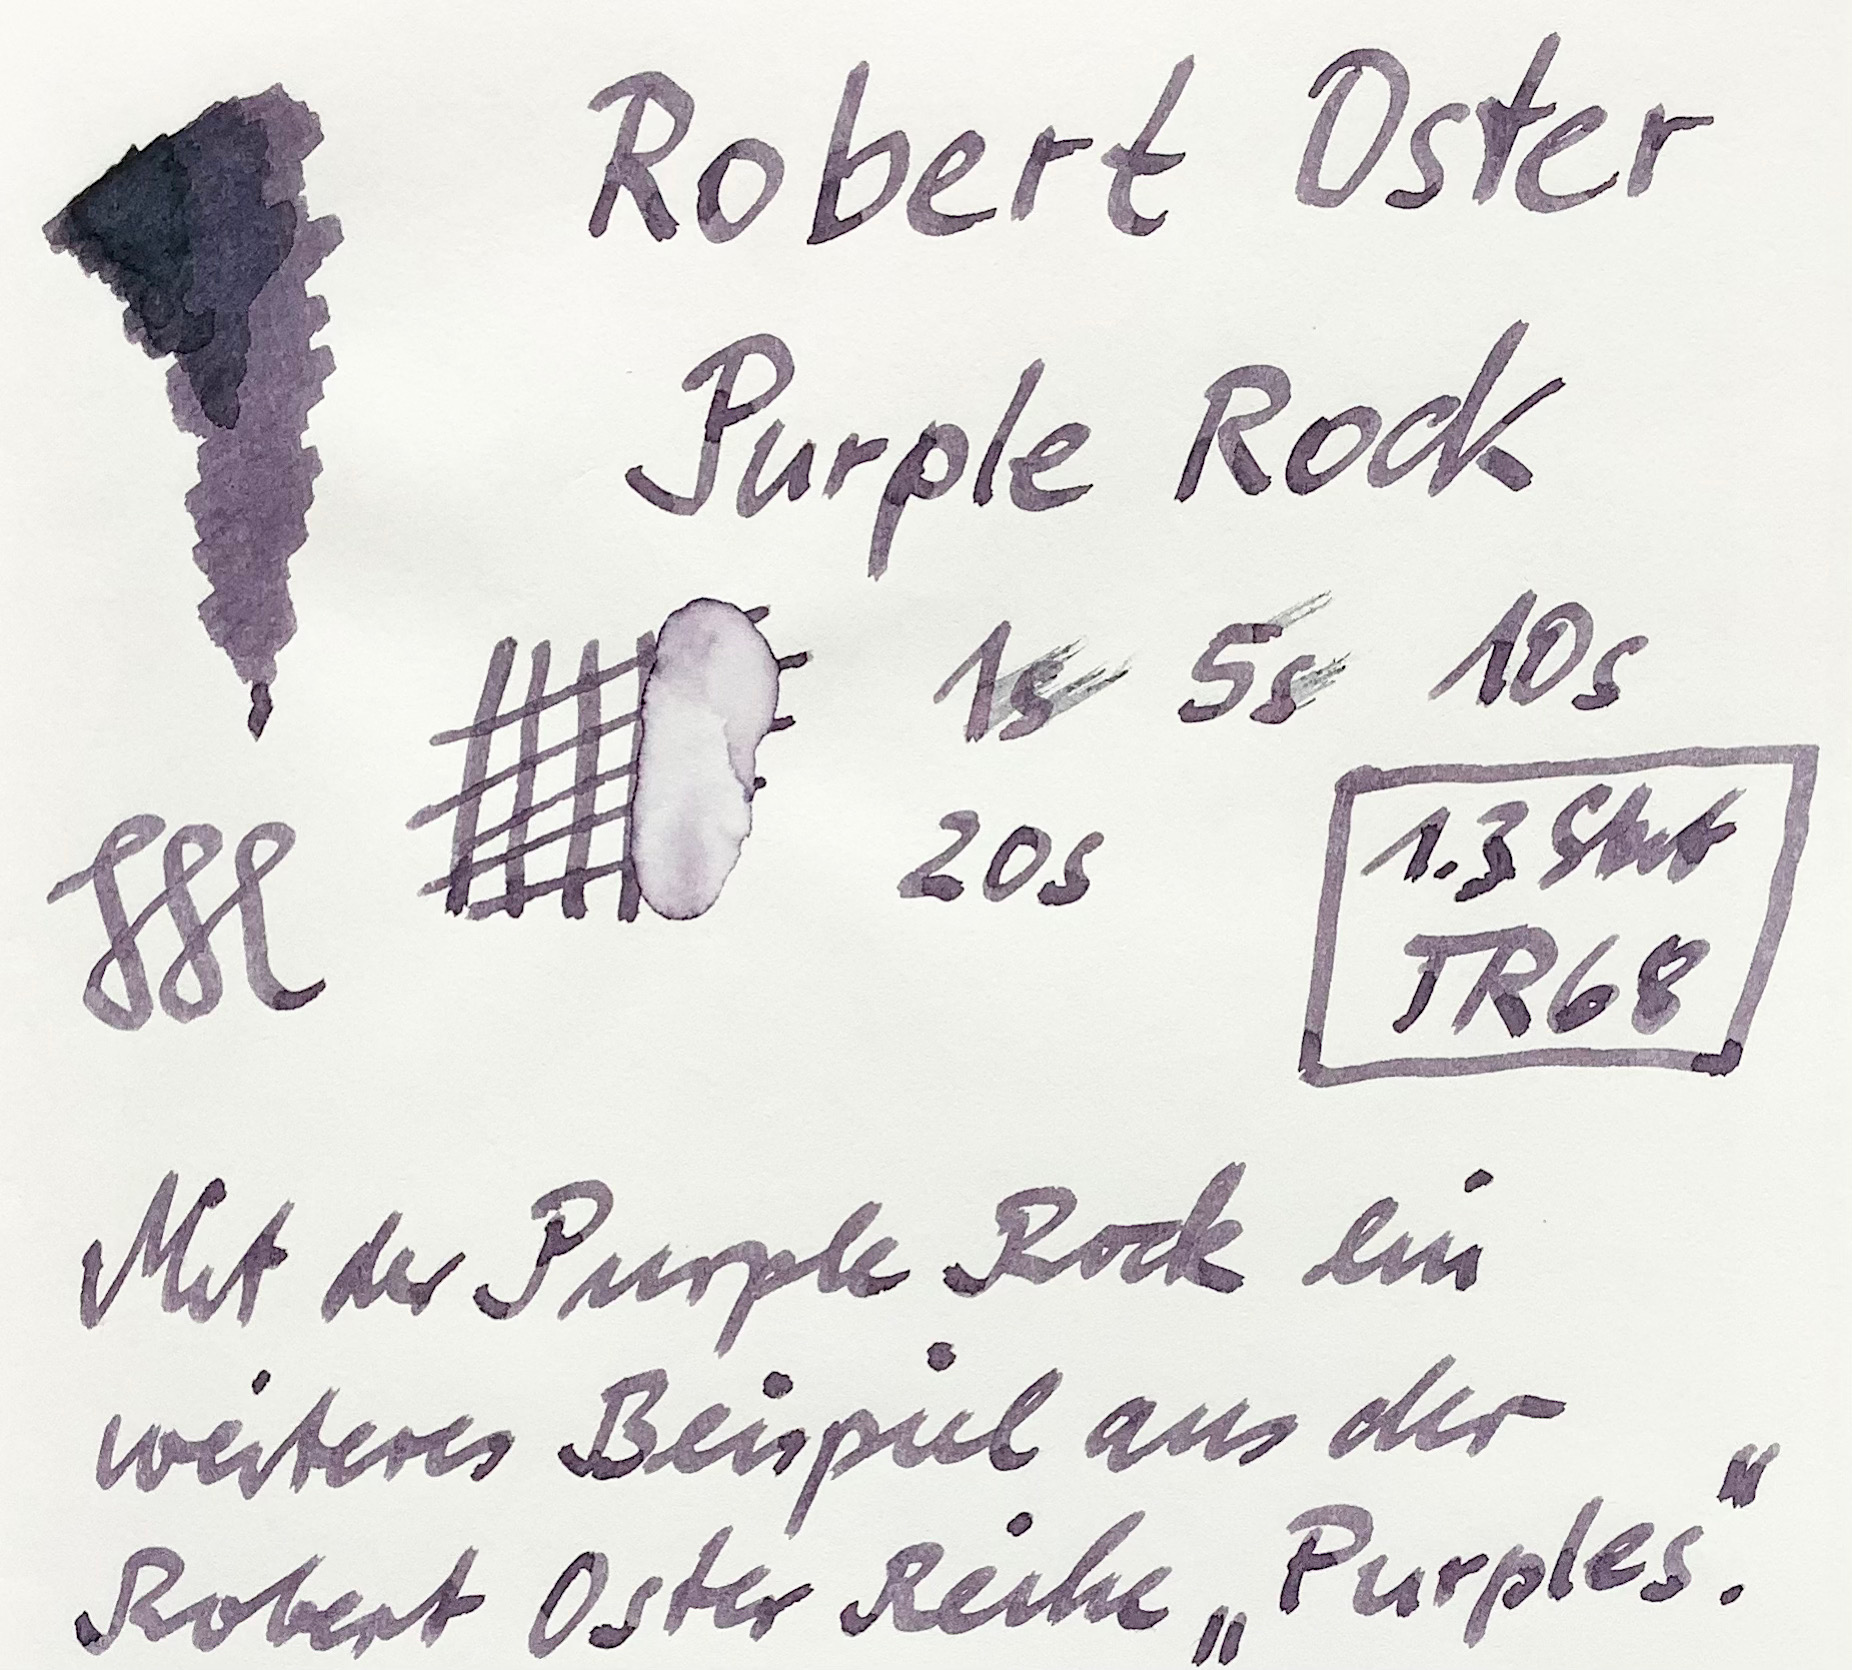 Robert Oster
Purple Rock
1s 5s 10s
20s
1.3 Stub
TR68
Mit der Purple Rock ein
weiteres Beispiel aus der
Robert Oster Reihe „Purples“.